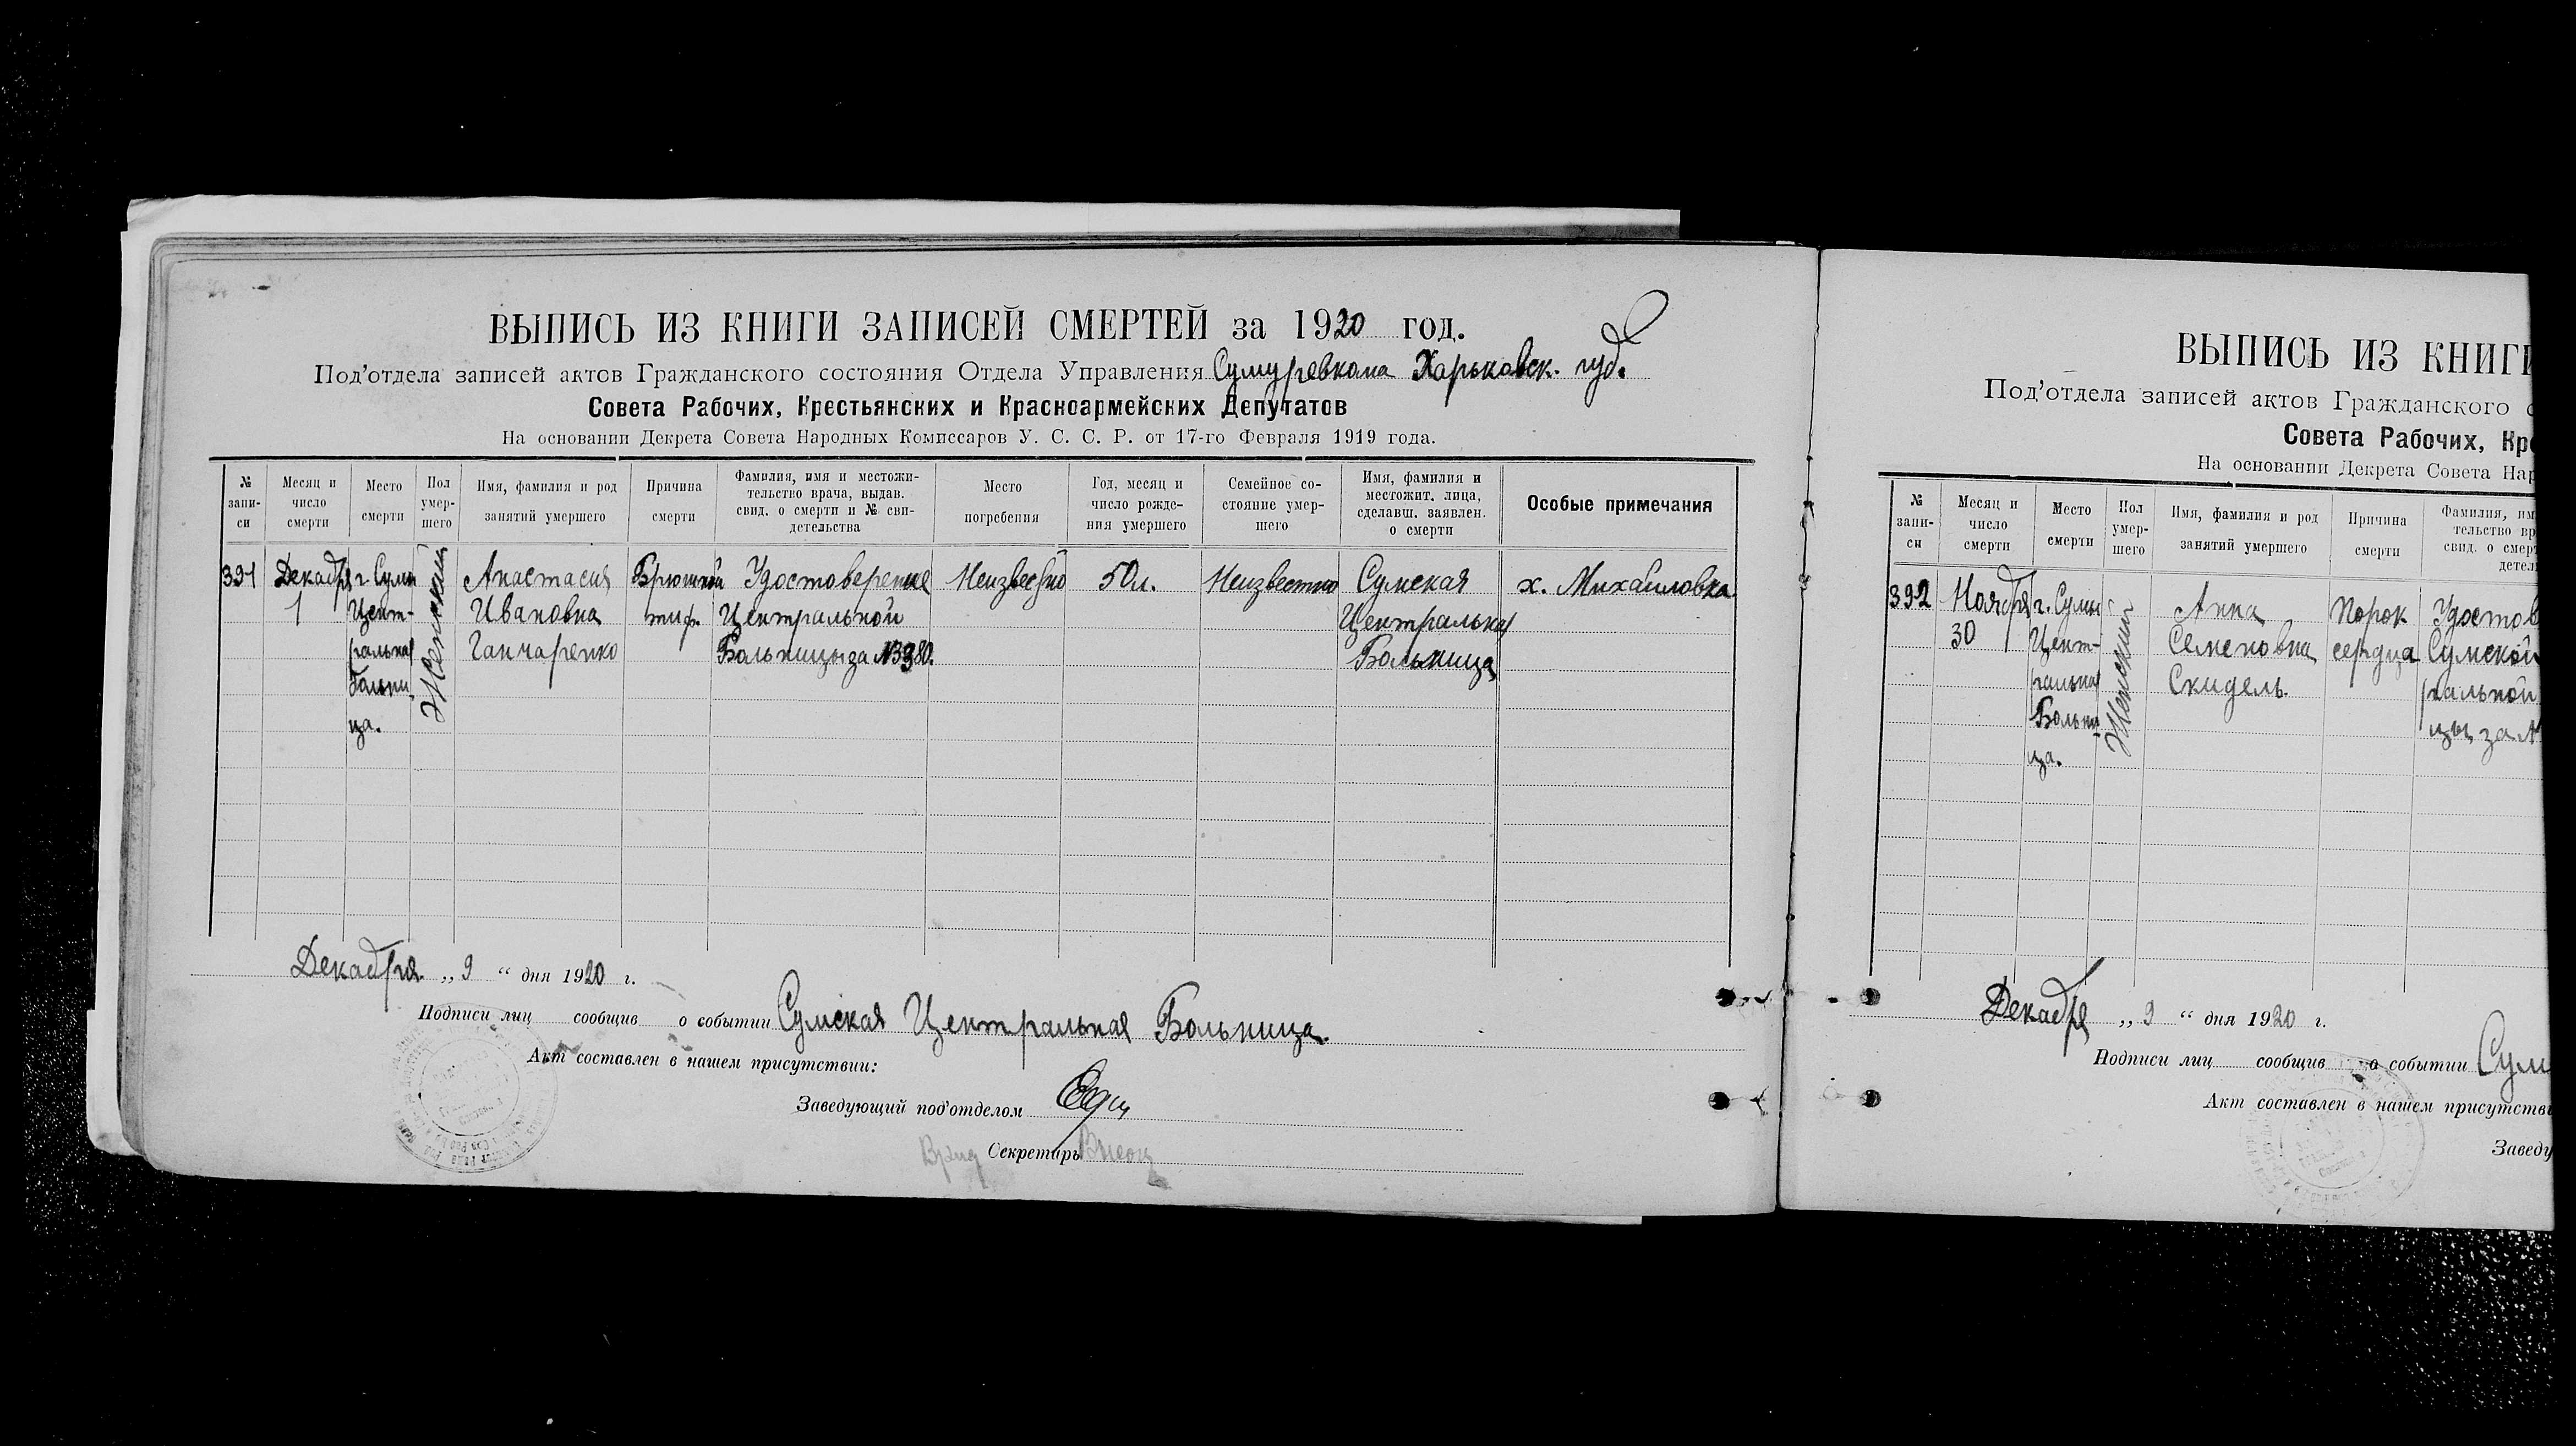 ВЫПИСЬ ИЗ КНИГИ ЗАПИСЕЙ СМЕРТЕЙ за 1920 год.
Под'отдела записей актов Гражданского состояния Отдела Управления Сумуревкома Харьковск. губ.
Совета Рабочих, Крестьянских и Красноармейских Депутатов
На основании Декрета Совета Народных Комиссаров У. С. С. Р. от 17-го Февраля 1919 года.
№ запи- си
Месяц и число смерти
Место смерти
Пол умер- шего
Имя, фамилия и род занятий умершего
Причина смерти
Фамилия, имя и местожи- тельство врача, выдав. свид. о смерти и № сви- детельства
Место погребения
Год, месяц и число рожде- ния умершего
Семейное со- стояние умер- шего
Имя, фамилия и местожит. лица, сделавш. заявлен. о смерти
Особые примечания
391
Декабря
1
г Сумы
Цент-
ральная
больни
ца.
Женский
Анастасия
Ивановна
Ганчаренко
Брюшной
тиф.
Удостоверение
Центральной
Больницы за №3380.
Неизвестно
50 л.
Неизвестно
Сумская
Центральная
Больница
х. Михайловка
Декабря „ 9 “ дня 1920 г.
Подписи лиц сообщив о событии Сумская Центральная Больница.
Акт составлен в нашем присутствии:
Заведующий под'отделом
Врид Секретарь
ВЫПИСЬ ИЗ КНИГИ
Под'отдела записей актов Гражданского с
Совета Рабочих, Кре
На основании Декрета Совета Нар
№ запи- си
Месяц и число смерти
Место смерти
Пол умер- шего
Имя, фамилия и род занятий умершего
Причина смерти
Фамилия, им
тельство вр
свид. о смерт
детель
392
Ноября
30
г. Сумы
Цент-
ральная
Больни-
ца.
Женский
Анна
Семеновна
Скидель.
Порок
сердца
Удостов
Сумской
ральной
цы за №
Декабря „ 9 “ дня 1920 г.
Подписи лиц сообщив о событии Сум
Акт составлен в нашем присутстви
Заведу